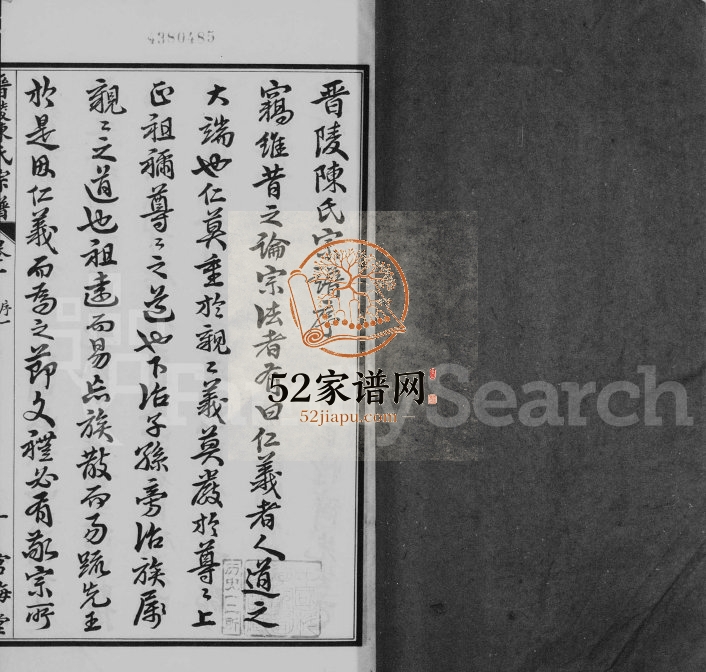 4380485
晋陵陳氏宗譜序
竊維昔之論宗法者有曰仁義者人道之
大端也仁莫重於親〻義莫嚴於尊〻上
正祖禰尊〻之道也下治子孫旁治族属
親〻之道也祖遠而易忘族散而易疏先王
於是因仁義而為之節文禮必有敬宗所
晋陵陳氏宗譜
卷一
序一
一
堂
52家谱网
52jiapu.com
FamilySearch